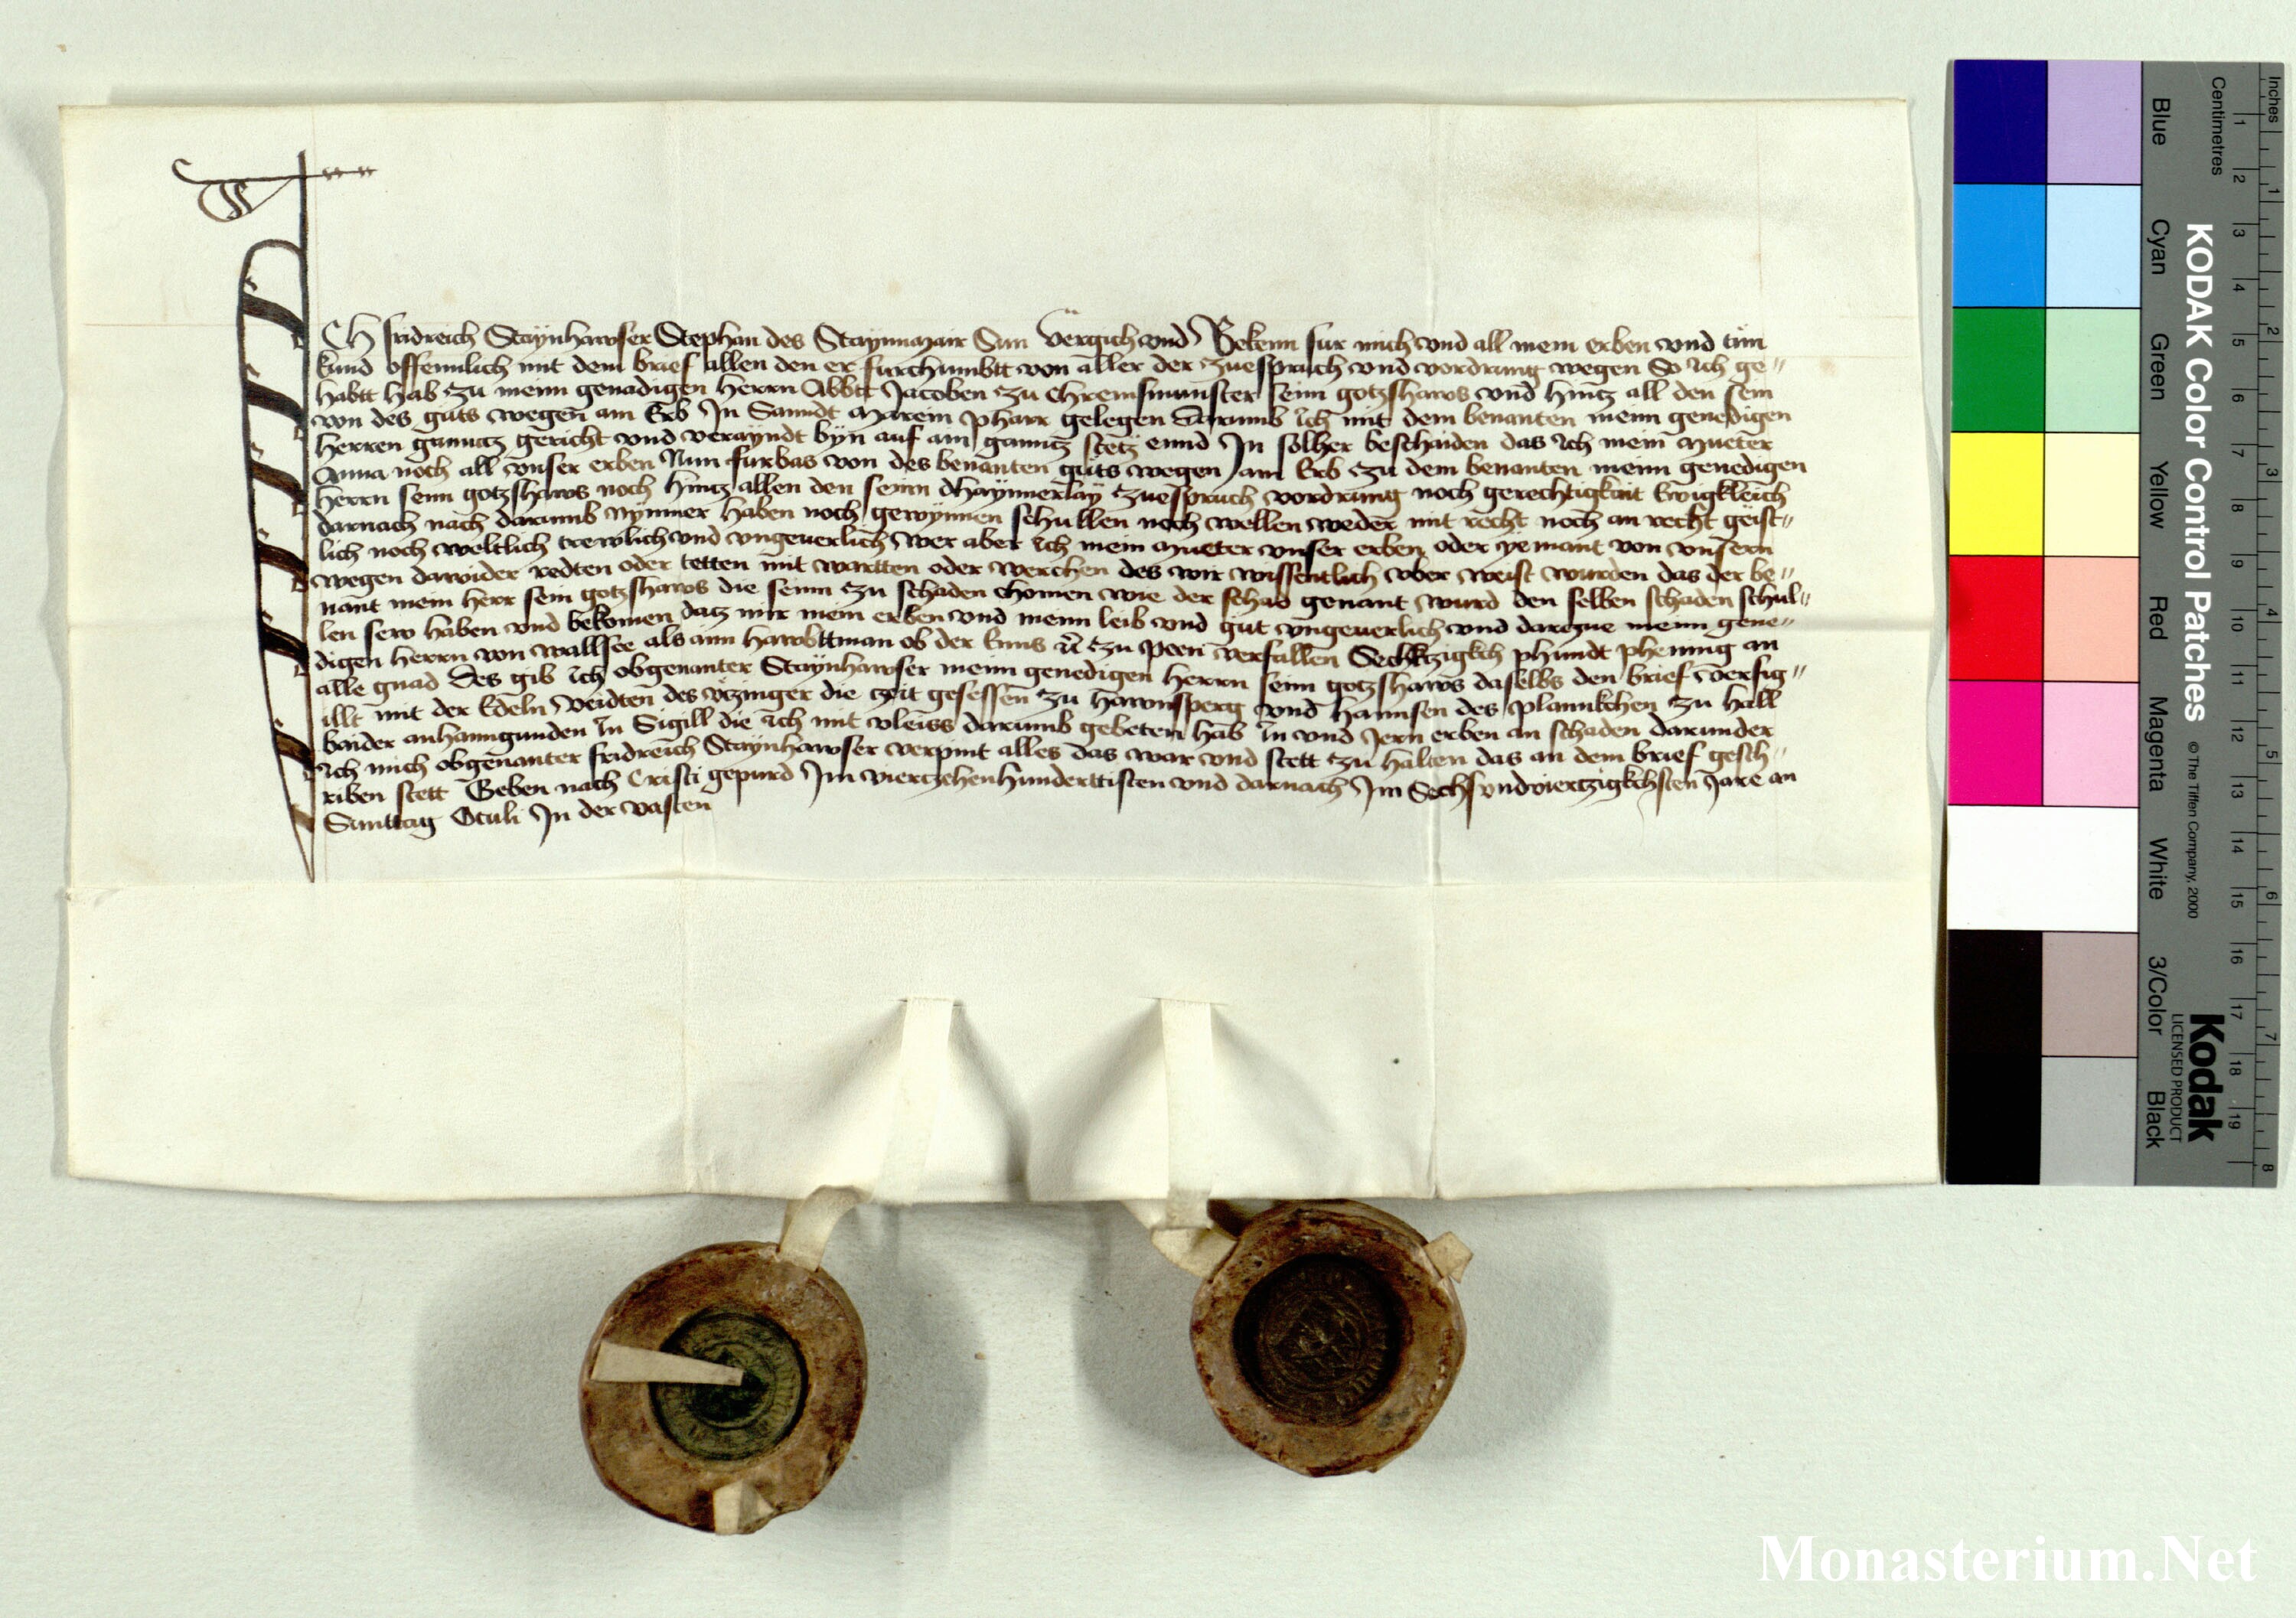 ICH fridreich Staÿnhawser Stephan des Staynmayr Sun Vergich vnd Bekenn fur mich vnd all mein erben vnd tun
kund offennlich mit dem brief allen den er furchumbtt von aller der zuespruch vnd vordrung wegen So ich ge-
habtt hab zu meinn genadigen Herrn Abbtt Jacoben zu Chremsmunster seinn gotzshaws vnd hintz all den sein
von des guts wegen am Erb In Sanndt Marein pharr gelegen darumb Ich mit dem benanten meinn genedigen
Herren gannttz gericht vnd veraÿndt bÿn auf am ganntz stetz ennd In solher beschaiden das Ich mein Mueter
Anna noch all vnser erben Nun furbas von des benanten guts wegen am Erb zu dem benanten meinn genedigen
Herrn seinn gotzshaws noch hintz allen den seinn dhaÿnnerlaÿ zuespruch vordrung noch gerechtigkait Ewigkleich
darnach nach darumb nÿmmer haben noch gewÿnnen schullen noch wellen weder mit recht noch an recht geist-
lich noch weltlich trewlich vnd vngeuerlich wer aber ich mein Mueter vnser erben oder yemant von vnsern
wegen dawider redten oder tetten mit wartten oder werchen des wir wissentlich vber weist wurden das der be-
nant mein herr sein gotzshaws die seinn zu schaden chomen wie der schad genant wurd den selben schaden schul-
len sew haben vnd bekomen datz mir mein erben vnd meinn leib vnd gut vngeuerlich vnd darczue meinn gene-
digen Herrn von wallsee als ainn hawbttman ob der Enns zu peen veruallen Sechtzigkch phundt phening an
alle gnad Des gib Ich obgenanter Staÿnhawser meinn genedigen herrn seinn gotzshaws daselbs den brief versig-
illt mit der Edeln Veidten des vtzinger die czeit gesessen zu hawnsperg vnd hannsen des plannkchen zu hall
baider anhanngunden In Sigill die ich mit vleiss darumb gebeten hab In vnd Jern erben an schaden darunder
Ich mich obgenanter fridreich Staÿnhawser verpint alles das war vnd stett zu halten das an dem brief gesch-
riben stett Geben nach Cristi gepurd Im vierczehenhunderttisten vnd darnach Im Sechs vndviertzigkchsten Jare an
Sunttag Oculi In der vasten
Inches
Centimetres
1 2 3 4 5 6 7 8 9 10 11 12 13 14 15 16 17 18 19
1 2 3 4 5 6 7 8
KODAK Color Control Patches © The Tiffen Company, 2000
Kodak
LICENSED PRODUCT
Blue Cyan Green Yellow Red Magenta White 3/Color Black
Monasterium.Net